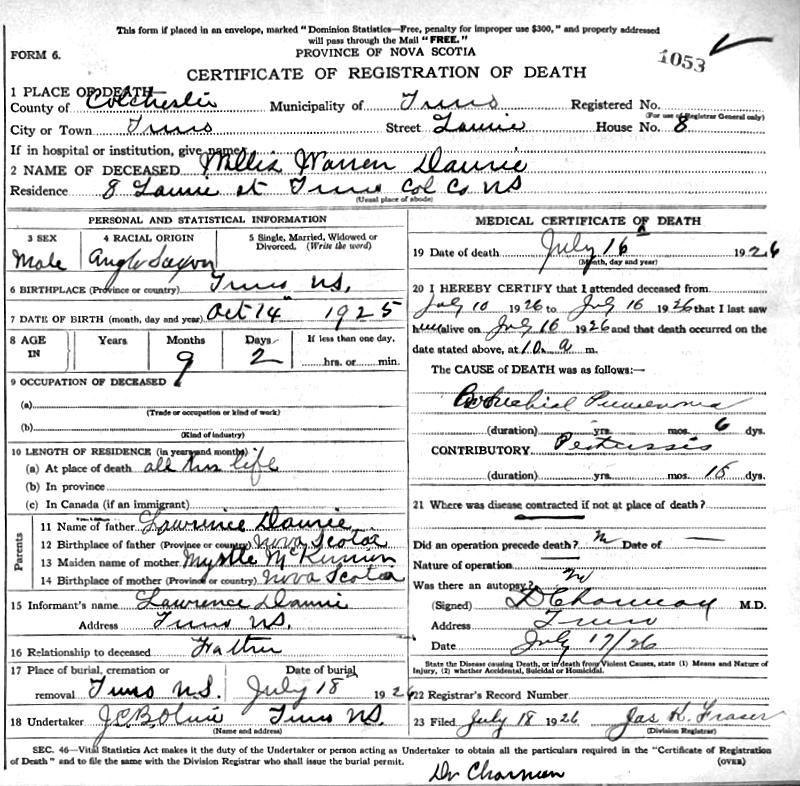 This form if placed in an envelope, marked "Dominion Statistics—Free, penalty for improper use $300," and properly addressed
will pass through the Mail "FREE."
FORM 6.
PROVINCE OF NOVA SCOTIA
1053
CERTIFICATE OF REGISTRATION OF DEATH
1 PLACE OF DEATH—
County of Colchester Municipality of Truro Registered No.
(For use of Registrar General only)
City or Town Truro Street Laurie House No. 8
If in hospital or institution, give name
2 NAME OF DECEASED Willis Warren Daurie
Residence 8 Laurie st Truro Col Co NS
(Usual place of abode)
PERSONAL AND STATISTICAL INFORMATION
3 SEX 4 RACIAL ORIGIN 5 Single, Married, Widowed or Divorced. (Write the word)
Male Anglo Saxon
6 BIRTHPLACE (Province or country) Truro NS.
7 DATE OF BIRTH (month, day and year) Oct 14" 1925
8 AGE IN Years Months Days If less than one day,
9 2 hrs. or min.
9 OCCUPATION OF DECEASED
(a)
(Trade or occupation or kind of work)
(b)
(Kind of industry)
10 LENGTH OF RESIDENCE (in years and months)
(a) At place of death all his life
(b) In province
(c) In Canada (if an immigrant)
Parents
11 Name of father Lawrence Daurie
12 Birthplace of father (Province or country) Nova Scotia
13 Maiden name of mother Myrtle
14 Birthplace of mother (Province or country) Nova Scotia
15 Informant's name Lawrence Daurie
Address Truro NS.
16 Relationship to deceased Father
17 Place of burial, cremation or removal Truro N.S. Date of burial July 18 1926
18 Undertaker Truro NS.
(Name and address)
MEDICAL CERTIFICATE OF DEATH
19 Date of death July 16 1926
(Month, day and year)
20 I HEREBY CERTIFY that I attended deceased from
July 10 1926 to July 16 1926 that I last saw
him alive on July 16 1926 and that death occurred on
date stated above, at 10 a m.
The CAUSE of DEATH was as follows:—
Bronchial Pneumonia
(duration) yrs. mos. 6 dys.
CONTRIBUTORY Pertussis
(duration) yrs. mos. 15 dys.
21 Where was disease contracted if not at place of death?
Did an operation precede death? No Date of —
Nature of operation
Was there an autopsy? No
(Signed) M.D.
Address Truro
Date July 17/26
State the Disease causing Death, or in death from Violent Causes, state (1) Means and Nature of
Injury, (2) whether Accidental, Suicidal or Homicidal.
22 Registrar's Record Number
23 Filed July 18 1926 Jas K. Fraser
(Division Registrar)
SEC. 46—Vital Statistics Act makes it the duty of the Undertaker or person acting as Undertaker to obtain all the particulars required in the "Certificate of Registration
of Death" and to file the same with the Division Registrar who shall issue the burial permit.
(OVER)
Dr